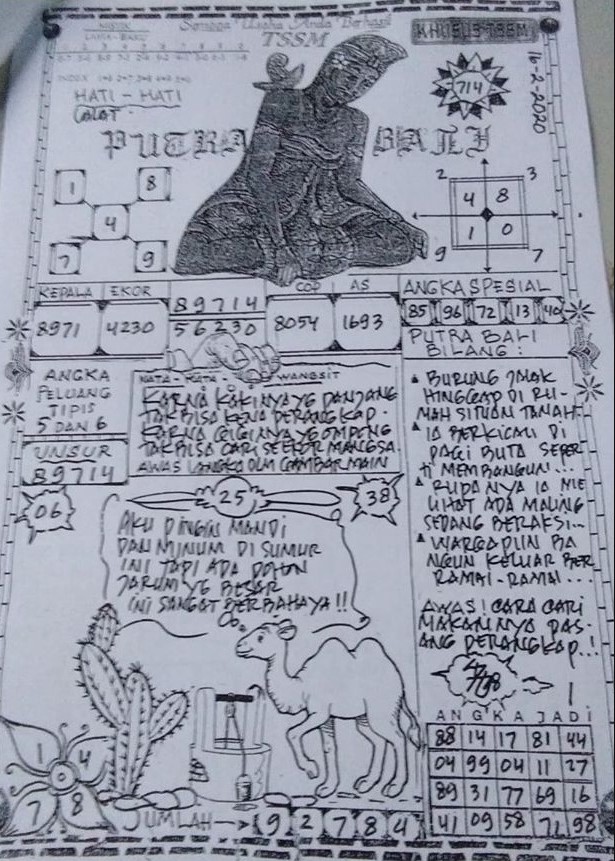 Semoga Usaha Anda Berhasil
TSSM
KHUSUS TSSM
16-2-2020
714
HATI - HATI
CALAT.
PUTRA BALI
1 8
4
7 9
2 3
4 8
1 0
9 7
KEPALA EKOR COP AS
8971 4230
89714
56230
8054 1693
ANGKA SPESIAL
85 96 72 13 40
ANGKA
PELUANG
TIPIS
5 DAN 6
UNSUR
89714
MATA - MATA WANGSIT
KARNA KAKINYA YG PANJANG
TAK BISA KENA PERANGKAP.
KARNA GIGINYA YG OMPONG
TAK BISA CARI SEEKOR MANGSA.
AWAS LANGKA DLM GAMBAR MAIN
PUTRA BALI
BILANG :
BURUNG JALAK
HINGGAP DI RU-
MAH SITUAN TANAH
IA BERKICAU DI
PAGI BUTA SEPER
TI MEMBANGUN...
RUPANYA IA ME
LIHAT ADA MALING
SEDANG BERAKSI...
WARGAPUN BA
NGUN KELUAR BER
RAMAI-RAMAI...
AWAS! CARA CARI
MAKANNYA PAS-
ANG PERANGKAP..!
06
25
38
AKU DINGIN MANDI
DAN MINUM DI SUMUR
INI TAPI ADA POHON
JARUM YG BESAR
INI SANGAT BERBAHAYA!!
06
ANGKA JADI
88 14 17 81 44
04 99 04 11 27
89 31 77 69 16
41 09 58 71 98
1 4
7 8
JUMLAH 9 2 7 8 4